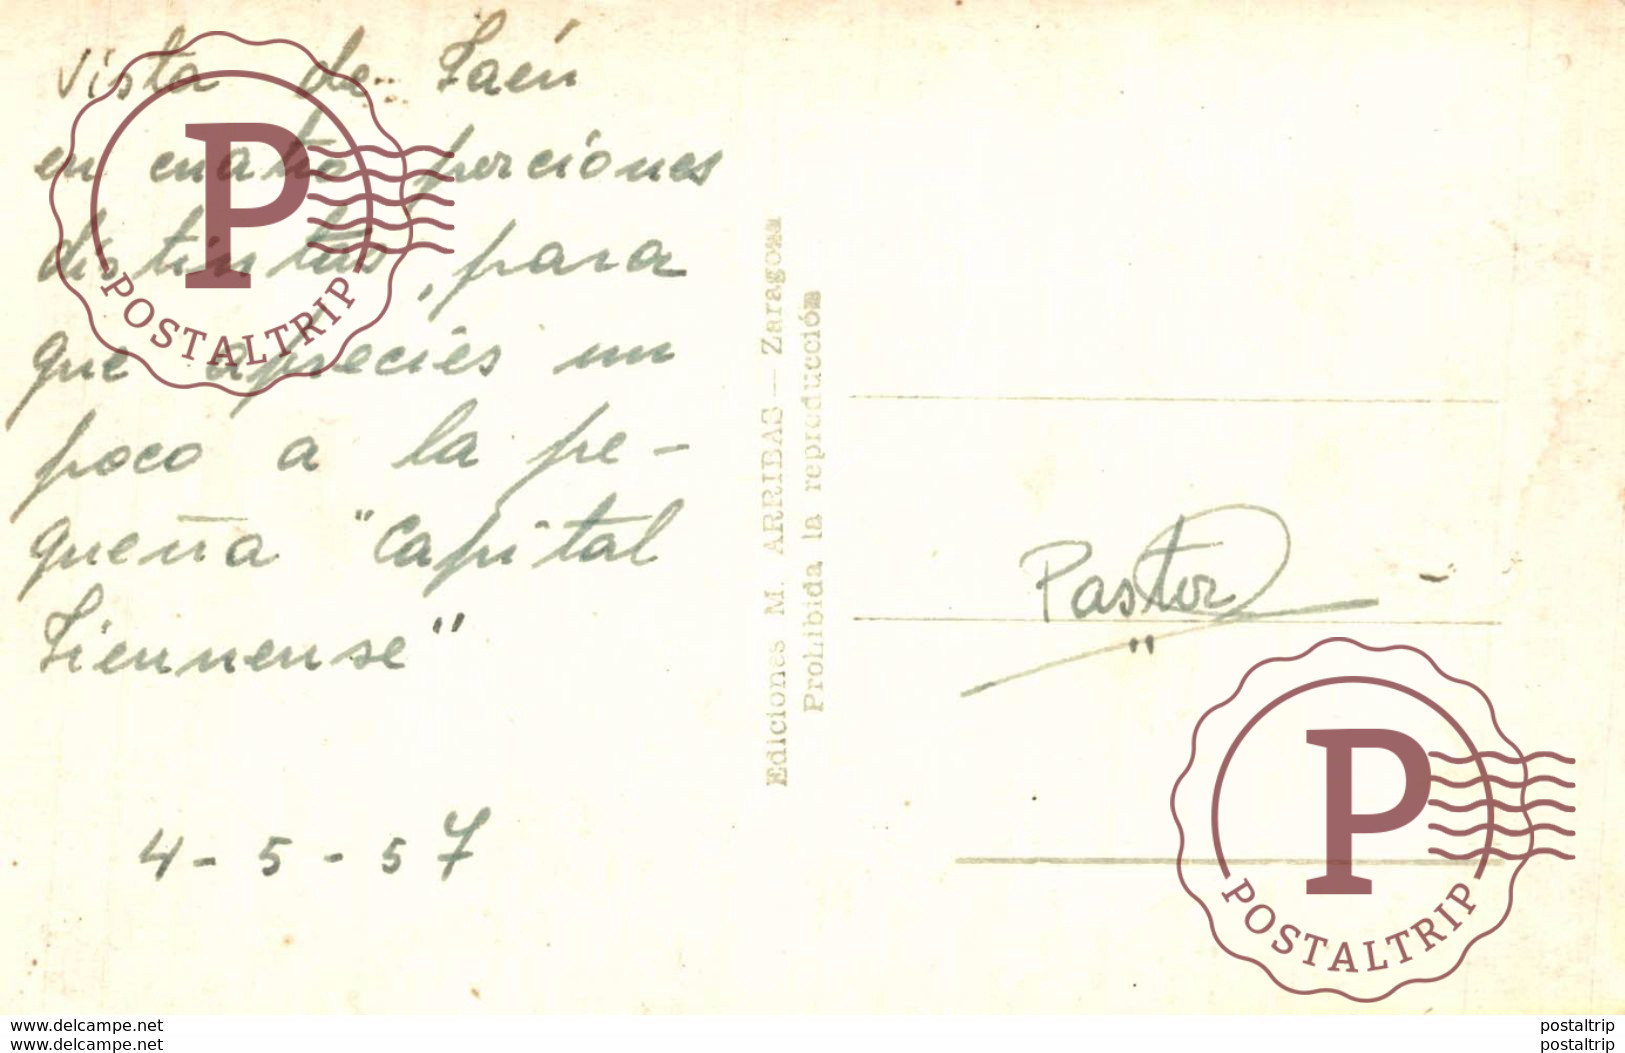 Vista de Jaén
en cuatro porciones
distintas, para
que apreciés un
poco a la pe-
queña "Capital
Jiennense"
4-5-57
Ediciones M. ARRIBAS — Zaragoza
Prohibida la reproducción
Pastor
P
POSTALTRIP
P
POSTALTRIP
www.delcampe.net
www.delcampe.net
postaltrip
postaltrip